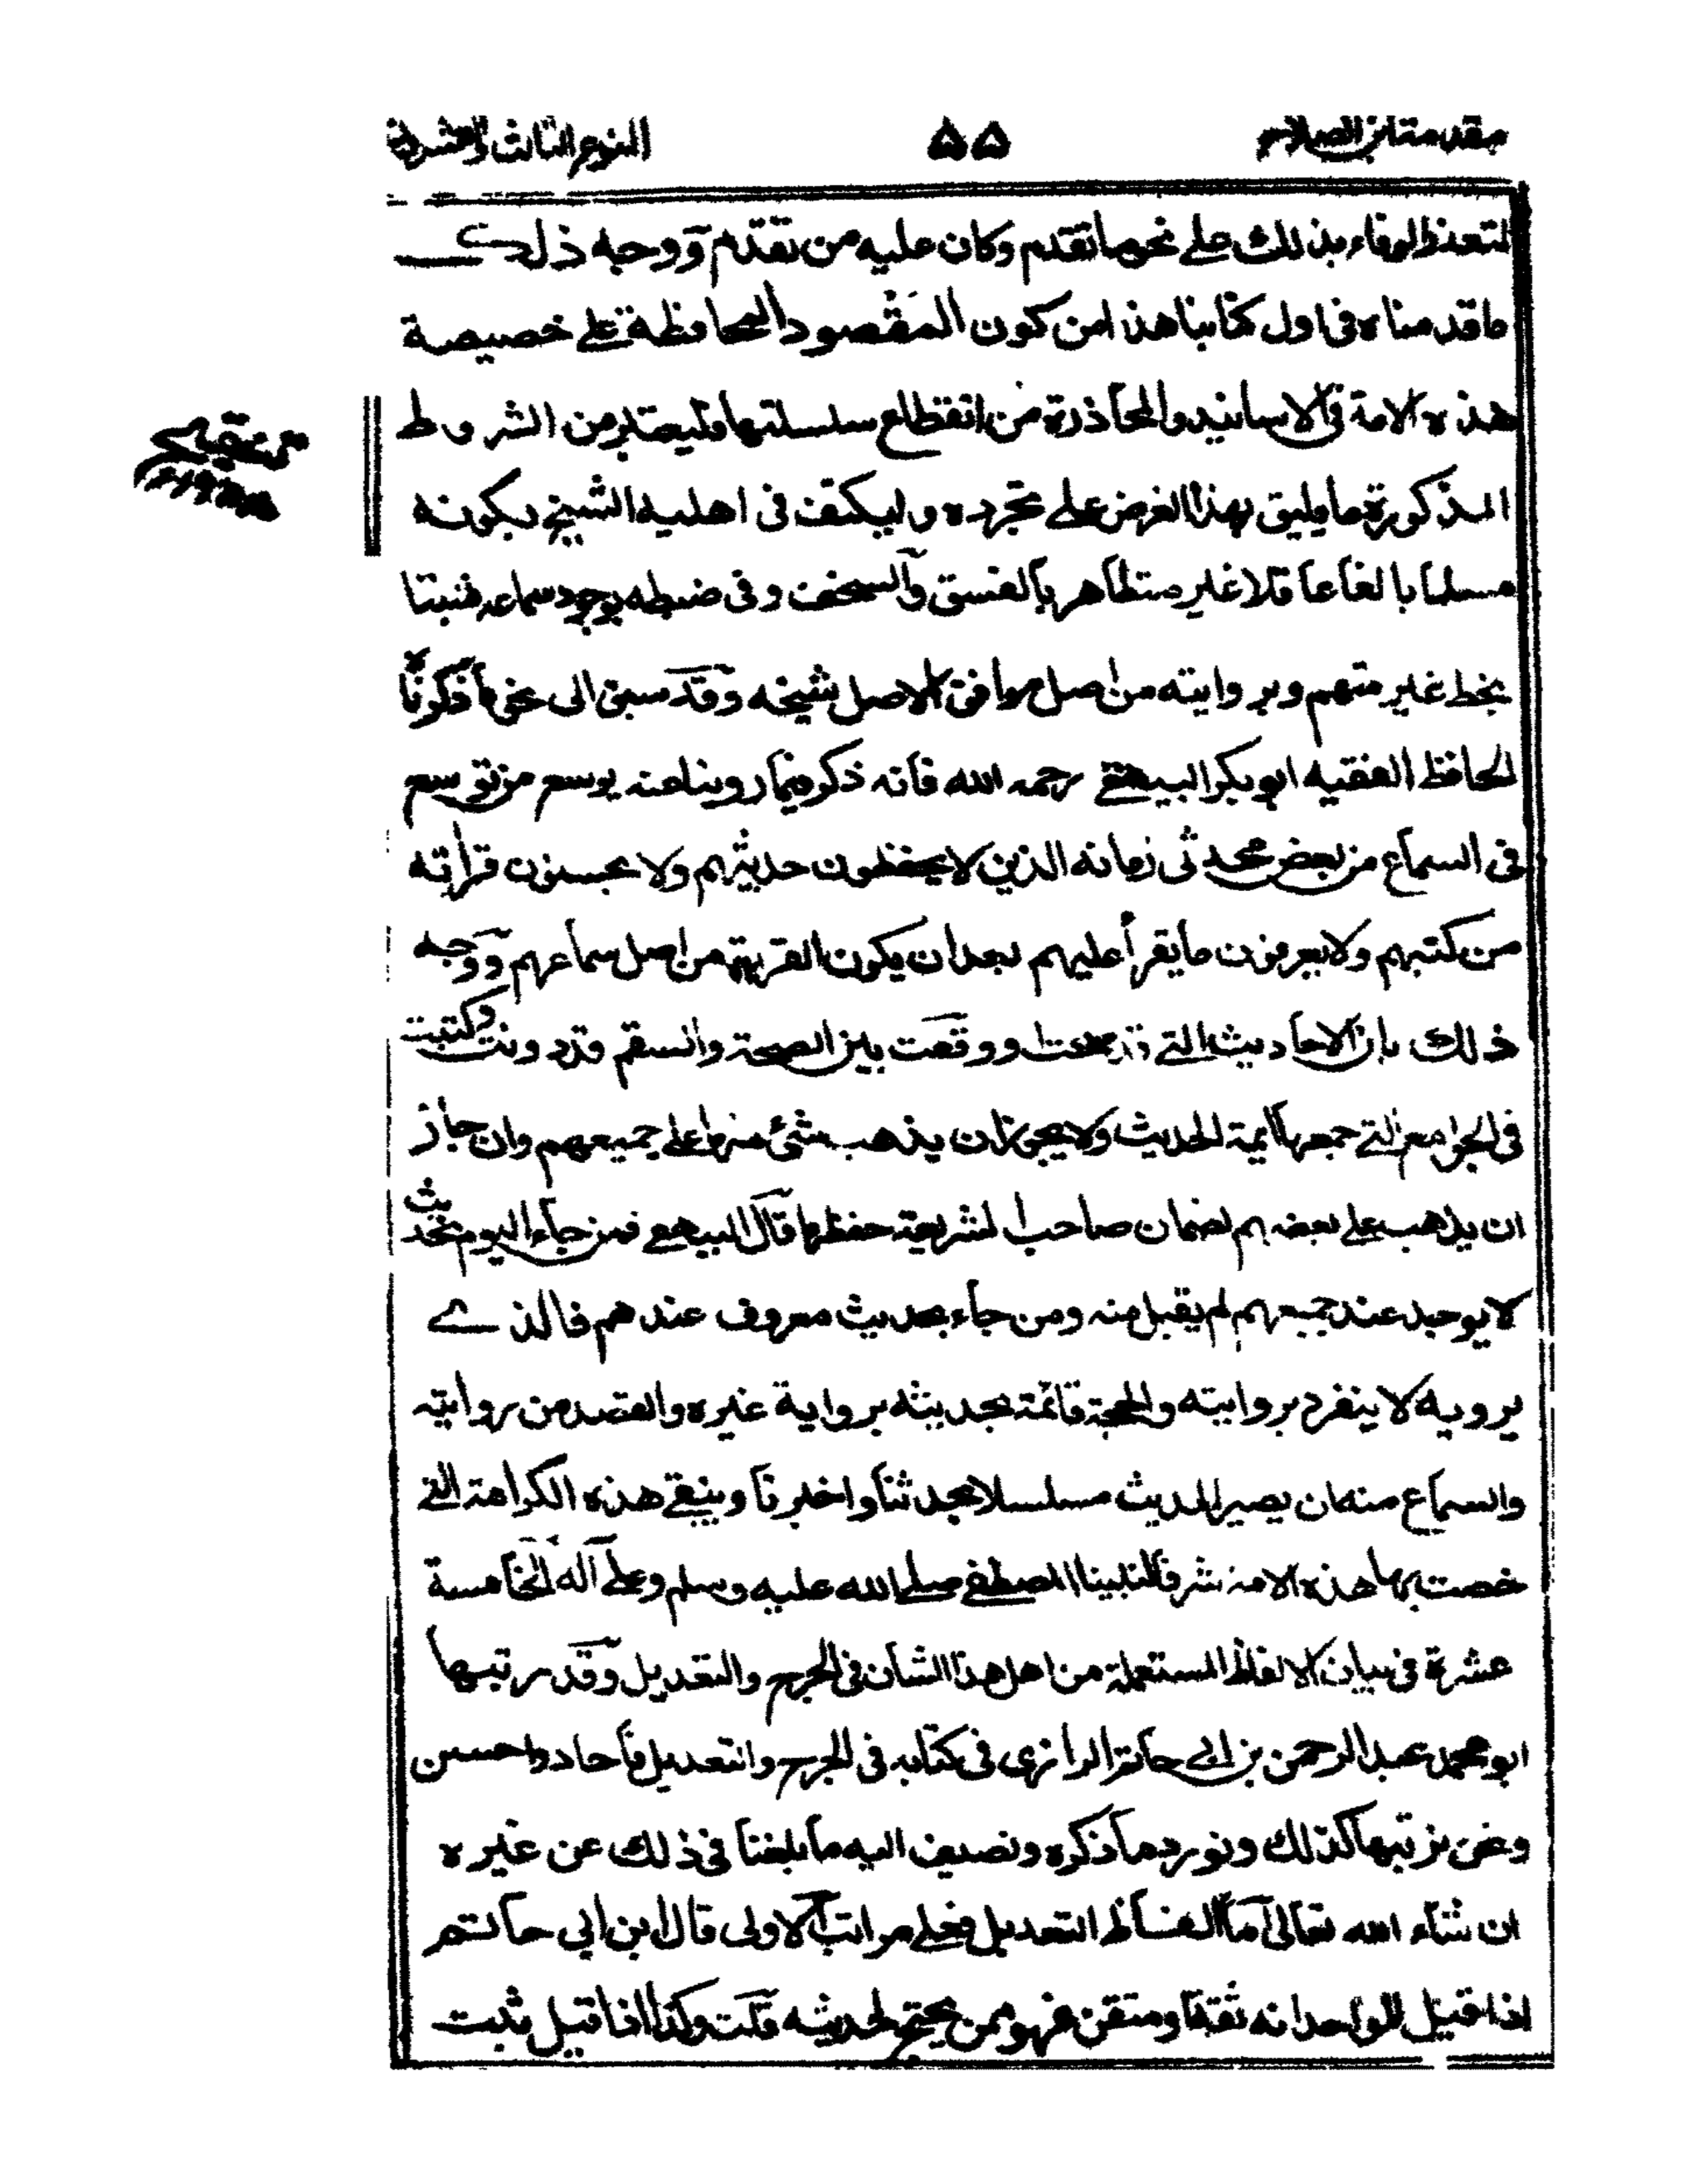 مقدمة ابن الصلاح ۵۵ النوع الثالث والعشرون
لتعذر الوفاء بذلك على نحو ما تقدم وكان عليه من تقدم ووجه ذلك
ما قدمناه فى اول كتابنا هذا من كون المقصود المحافظة على خصيصة
هذه الامة فى الاسانيد والمحاذرة من انقطاع سلسلتها فليعتبر من الشروط
المذكورة ما يليق بهذا الغرض على تجرده وليكتف فى اهلية الشيخ بكونه
مسلما بالغا عاقلا غير متظاهر بالفسق والسخف وفى ضبطه بوجود سماعه مثبتا
بخط غير متهم وبروايته من اصل موافق لاصل شيخه وقد سبق الى نحو ما ذكرناه
الحافظ الفقيه ابو بكر البيهقى رحمه الله فانه ذكر فيما روينا عنه يوسع من توسع
فى السماع من بعض محدثى زمانه الذين لا يحفظون حديثهم ولا يحسنون قراته
من كتبهم ولا يعرفون ما يقرأ عليهم بعد ان يكون القرية من اصل سماعهم ووجه
ذلك بان الاحاديث التى قد صحت او وقعت بين الصحة والسقم قد دونت وكتبت
فى الجوامع التى جمعها ايمة الحديث ولا يجوز ان يذهب شئ منها على جميعهم وان جاز
ان يذهب على بعضهم لضمان صاحب الشريعة حفظها قال البيهقى فمن جاء اليوم بحديث
لا يوجد عند جميعهم لم يقبل منه ومن جاء بحديث معروف عندهم فالذے
يرويه لا ينفرد بروايته والحجة قائمة بحديثه برواية غيره والقصد من روايته
والسماع منه ان يصير الحديث مسلسلا بحدثنا واخبرنا ويبقى هذه الكرامة التى
خصت بها هذه الامة شرفا لنبينا المصطفى صلى الله عليه وسلم وعلى آله الخامسة
عشرة فى بيان الالفاظ المستعملة من اهل هذا الشان فى الجرح والتعديل وقد رتبها
ابو محمد عبد الرحمن بن ابى حاتم الرازى فى كتابه فى الجرح والتعديل فاجاد واحسن
ونحن نرتبها كذلك ونورد ما ذكره ونضيف اليه ما بلغنا فى ذلك عن غيره
ان شاء الله تعالى اما الفاظ التعديل فعلى مراتب الاولى قال ابن ابي حاتم
اذا قيل للواحد انه ثقة او متقن فهو ممن يحتج بحديثه قلت وكذا اذا قيل ثبت